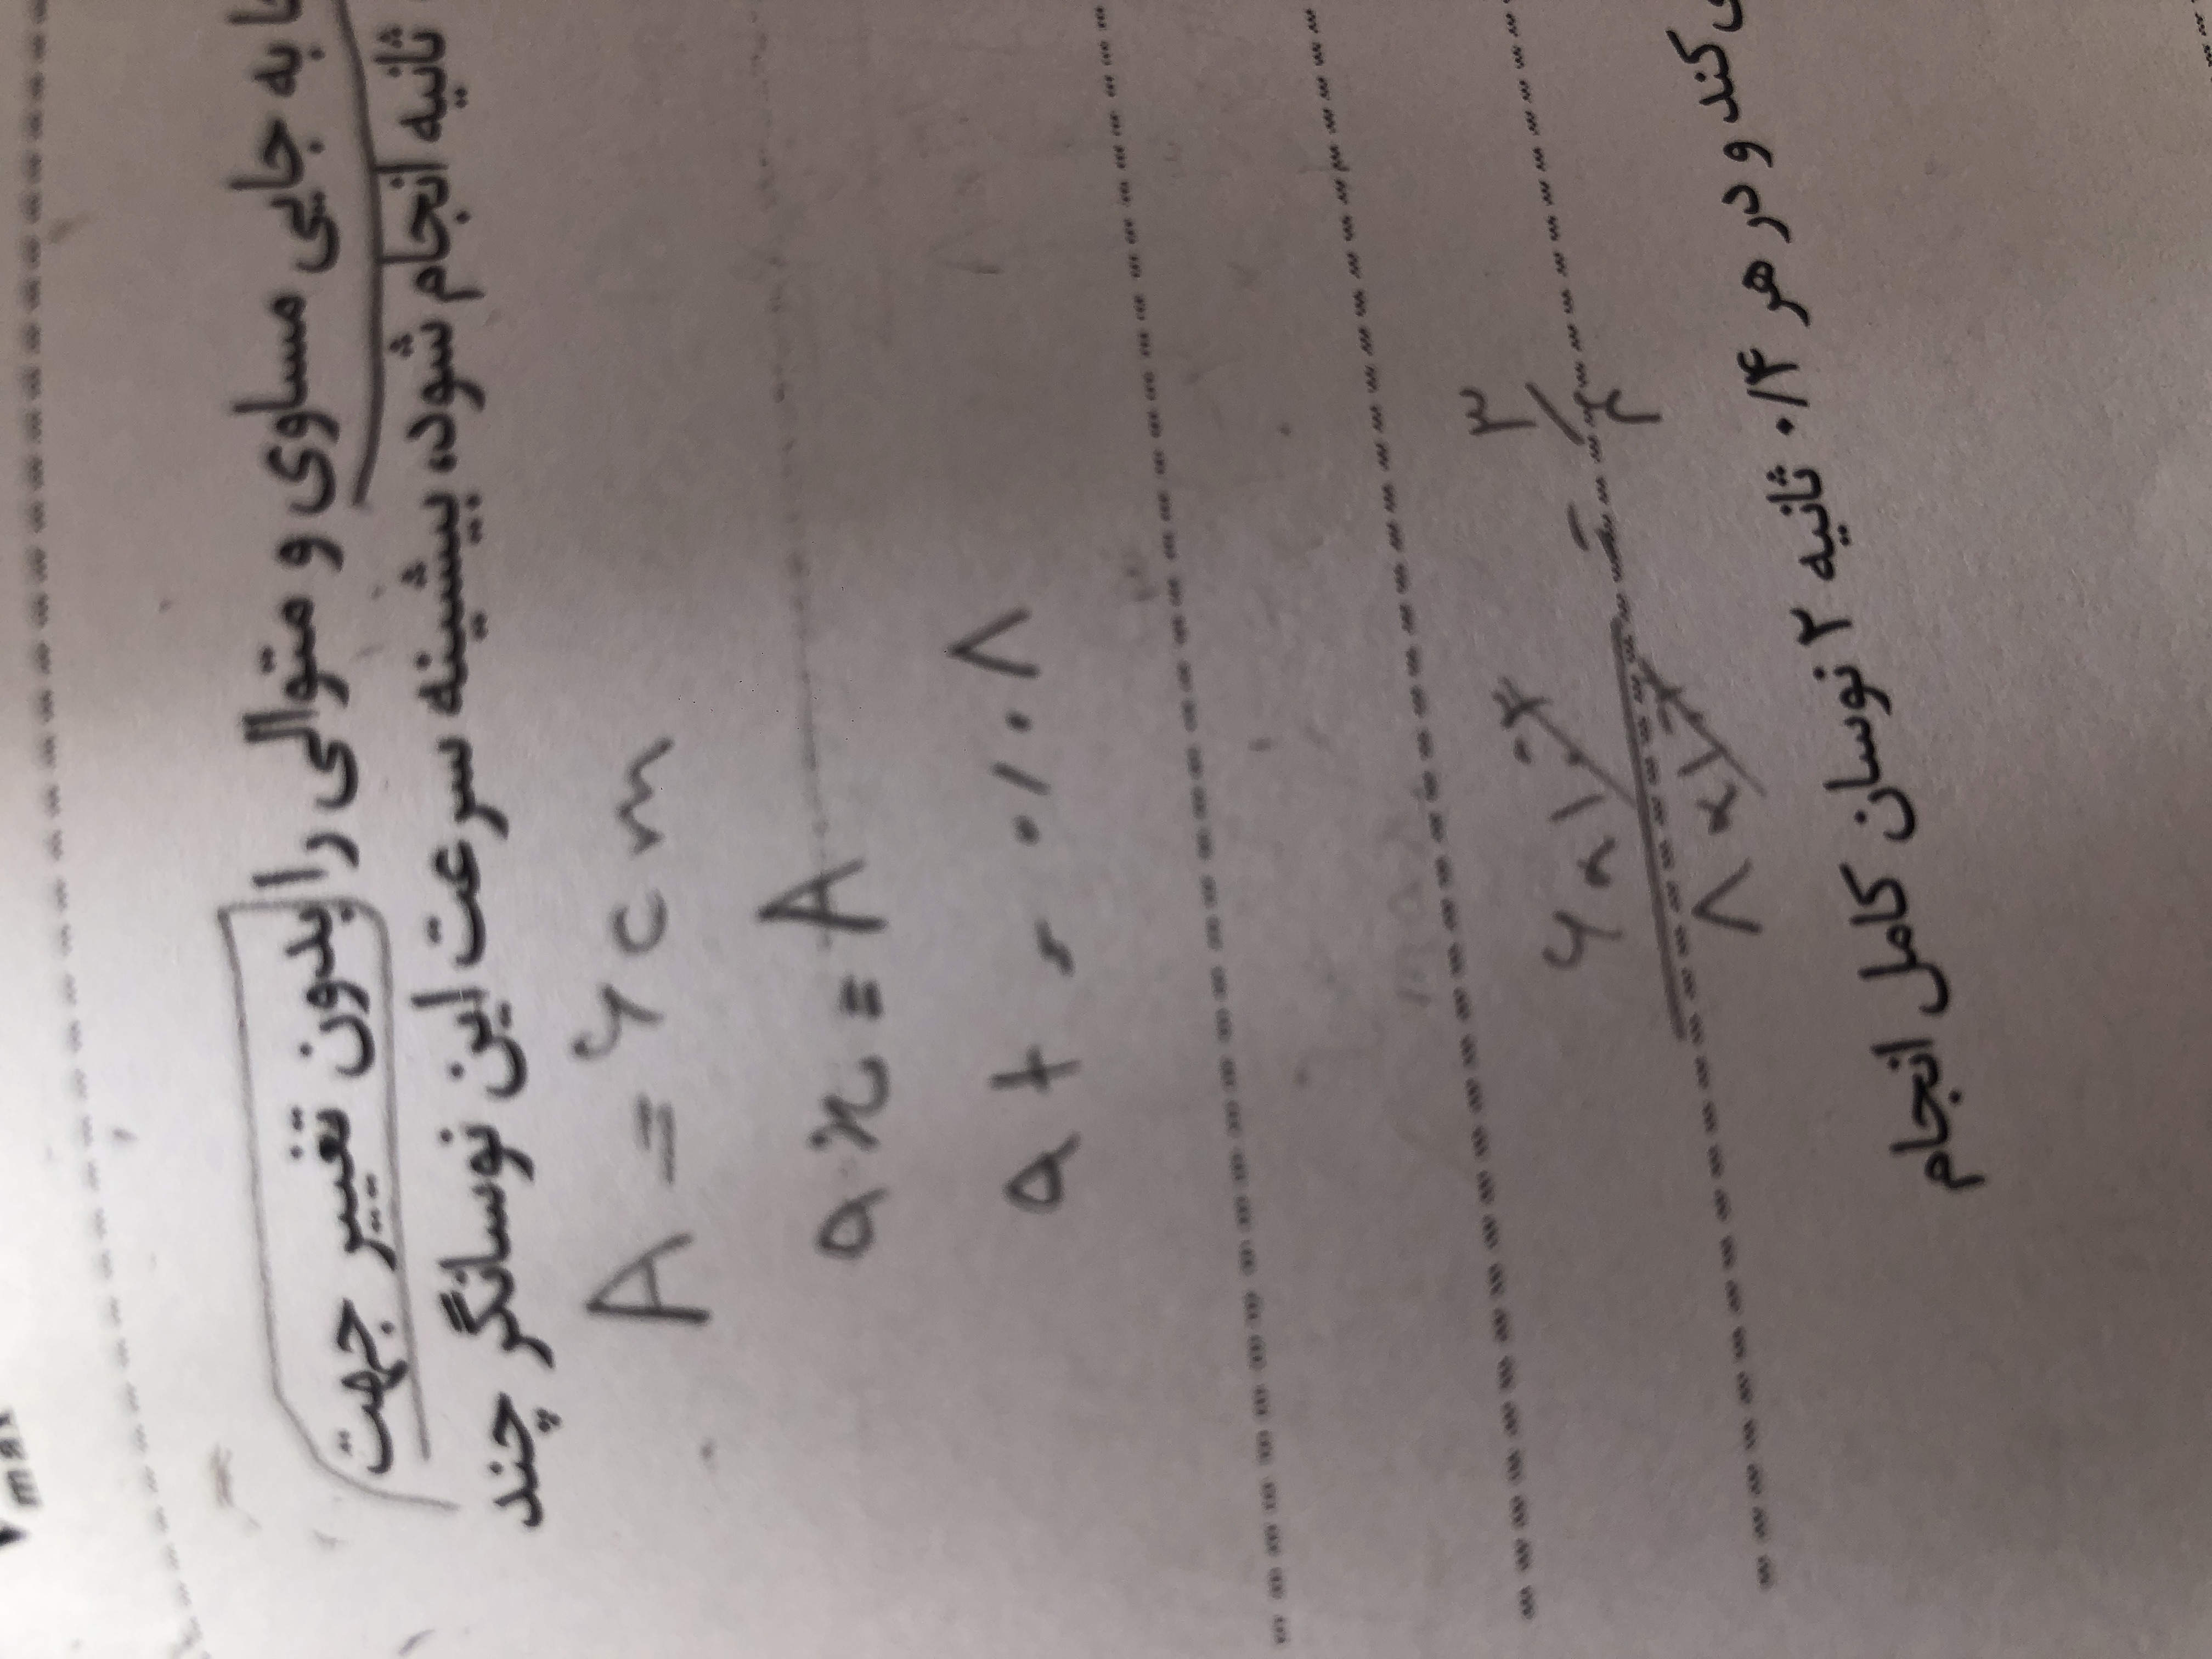 به جایی مساوی و متوالی را بدون تغییر جهت
ثانیه انجام شود، بیشینه سرعت این نوسانگر چند
A = ۶ cm
ax = A
at = ۰/۰۸
۶×۱۰^-۲ / ۸×۱۰^-۲ = ۳/۴
کند و در هر ۰/۴ ثانیه ۲ نوسان کامل انجام